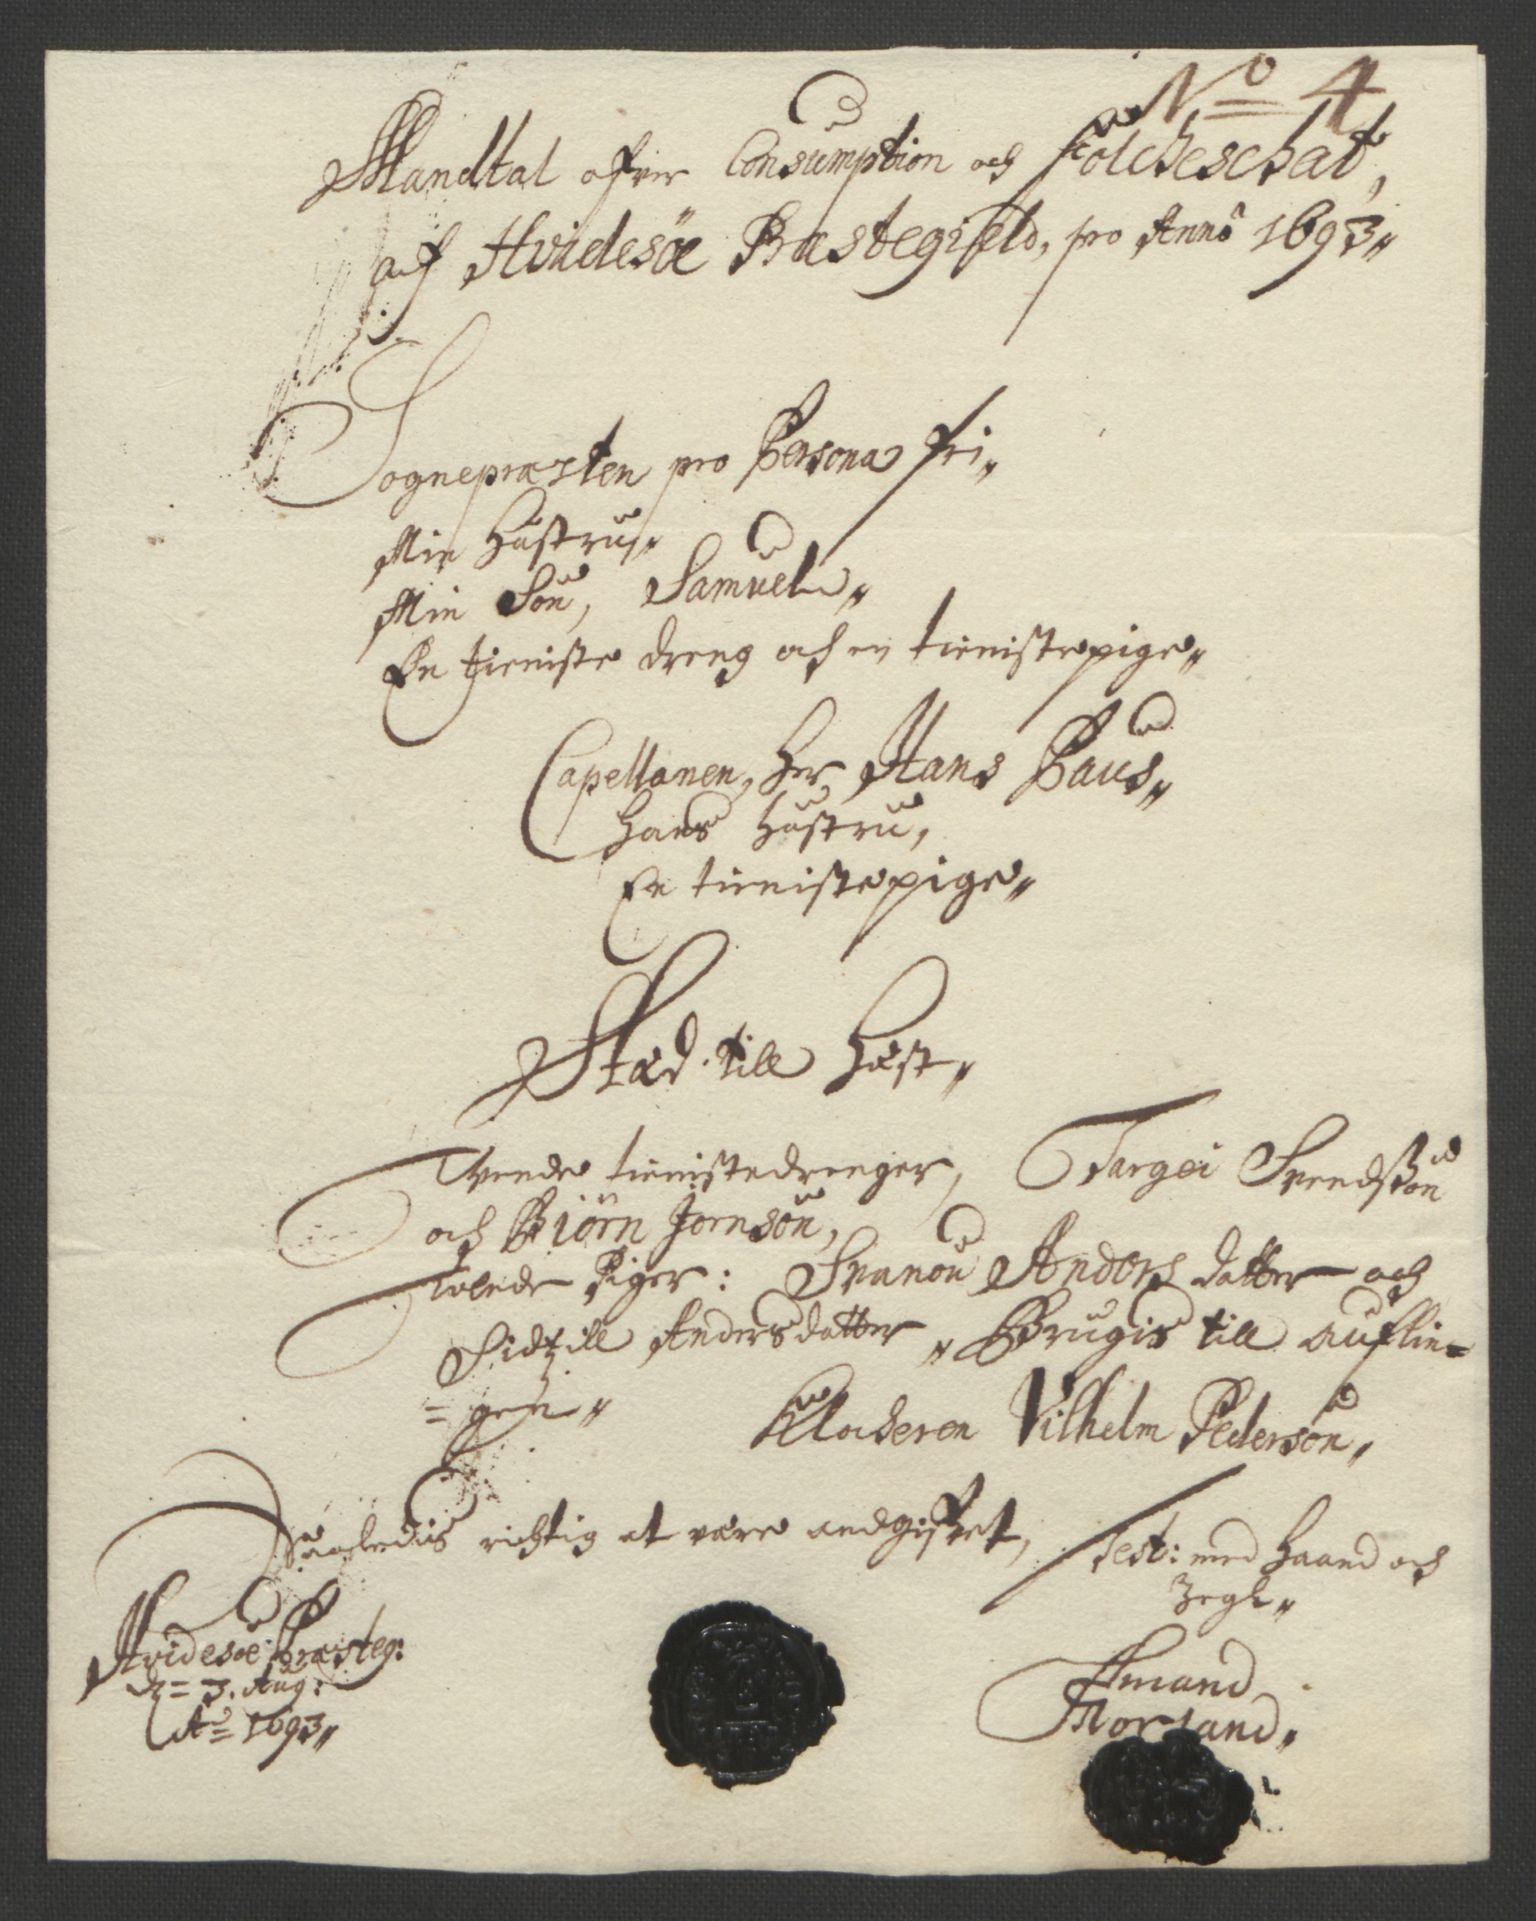 No 4
Mandtal ofver Consumption och Folcheschat,
af Hvidesöe Præstegield, pro Anno 1693
Sognepræsten pro Persona fri
Min Hustru
Min Sön, Samuel
En tieniste dreng och en tienistepige
Capellanen, Her Hans Paus
Hans Hustru,
En tienistepige
Stæd till Hæst
Tvende tienistedrenger, Targei Svendssön
och Biörn Jornsön,
Tvende Piger: Svanou Anders datter och
Sidzill Andersdatter, Brugis till auflin=
=gen
Klocheren Vilhelm Pedersön,
Saaledis richtig at være andgifvet, Test: med Haand och
Zegl
Hvidesöe Præsteg:
d= 3. Aug:
Ao= 1693
Amand
Morland